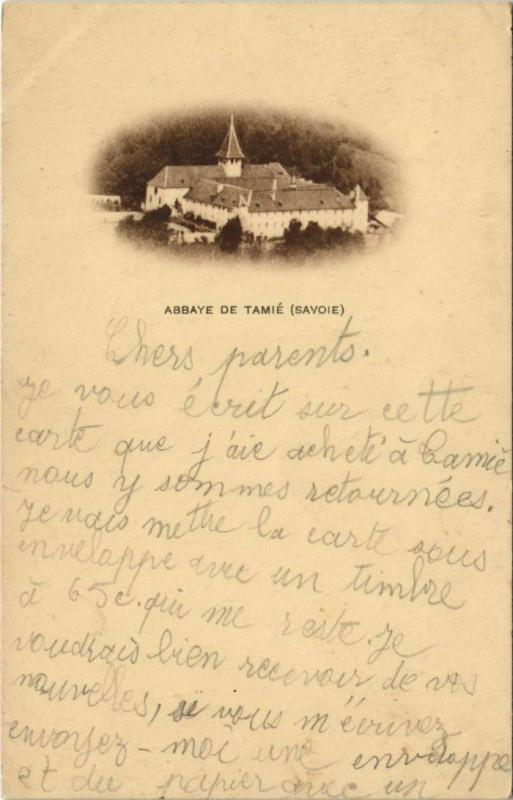 ABBAYE DE TAMIÉ (SAVOIE)
Chers parents.
je vous écrit sur cette
carte que j'aie acheté à Tamié
nous y sommes retournées.
Je vais mettre la carte sous
enveloppe avec un timbre
à 65c. qui me reste. Je
voudrais bien recevoir de vos
nouvelles, si vous m'écrivez
envoyez-moi une enveloppe
et du papier avec un